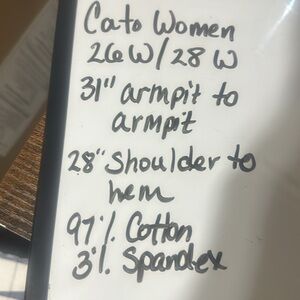 Cato Women
26W/28W
31" armpit to
armpit
28" Shoulder to
hem
97% Cotton
3% Spandex